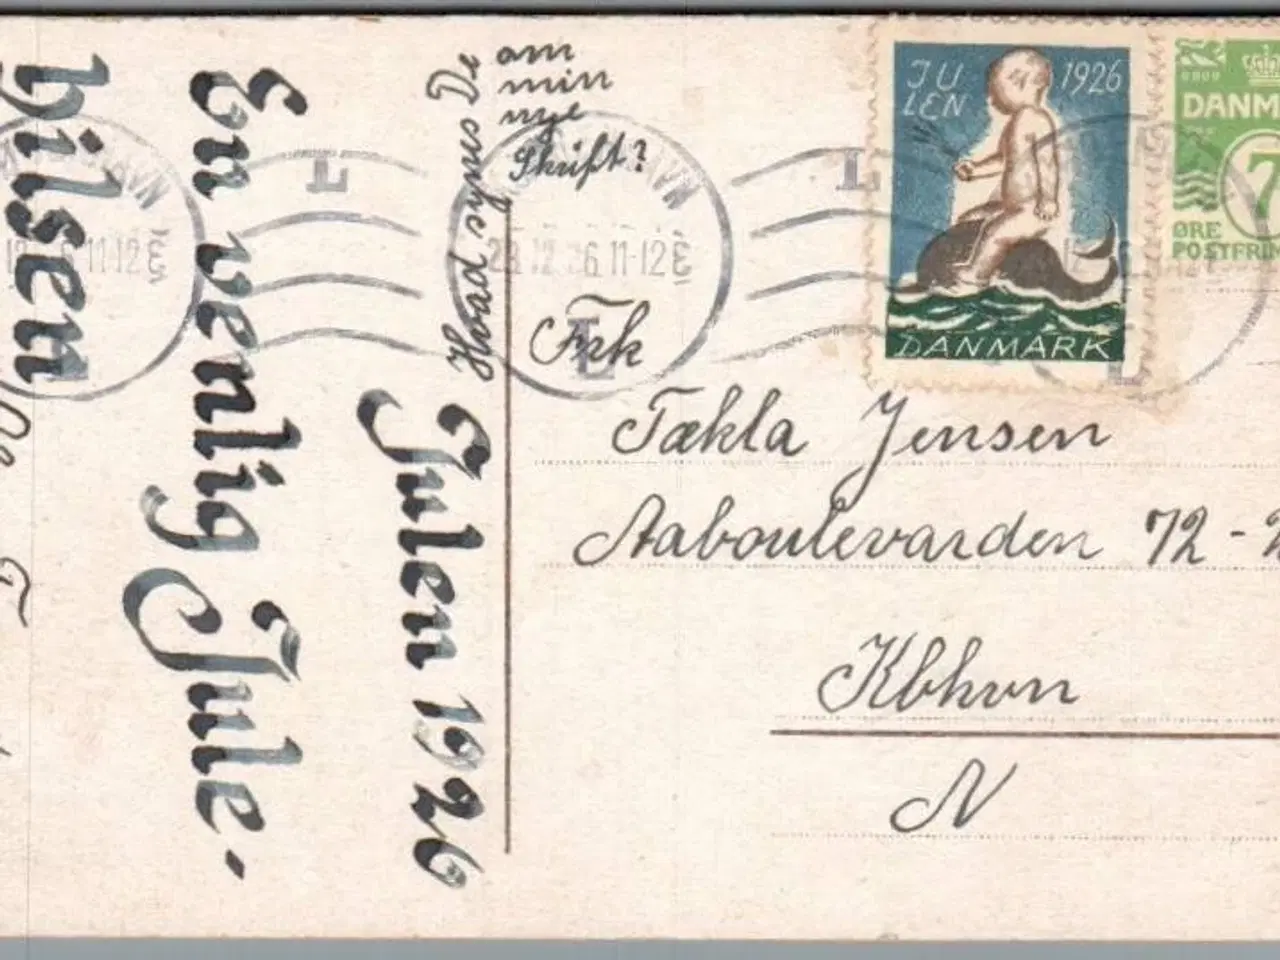 Julen 1926
En venlig Jule-
hilsen
Hvad synes De
om
min
nye
Skrift?
JU
LEN
1926
DANMARK
DANM
7
ØRE
POSTFRIM
L
L
L
HAVN
HAVN
28.12.26 11-12 E
11-12 E
Frk
Tækla Jensen
Aaboulevarden 72 - 2
Kbhvn
N